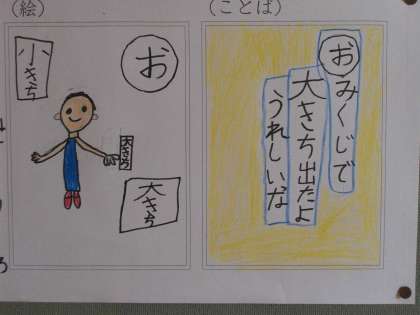 (絵)
小きち
お
大きち
大きち
(ことば)
おみくじで
大きち出たよ
うれしいな